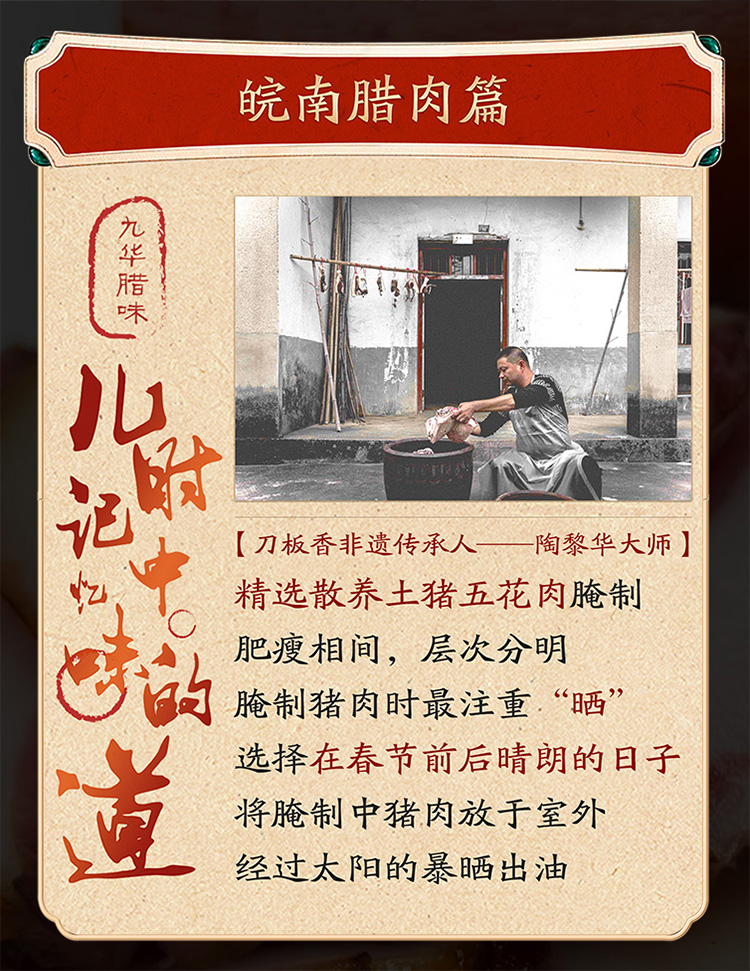 皖南腊肉篇
九华腊味
儿时记忆中的味道
【刀板香非遗传承人——陶黎华大师】
精选散养土猪五花肉腌制
肥瘦相间，层次分明
腌制猪肉时最注重“晒”
选择在春节前后晴朗的日子
将腌制中猪肉放于室外
经过太阳的暴晒出油